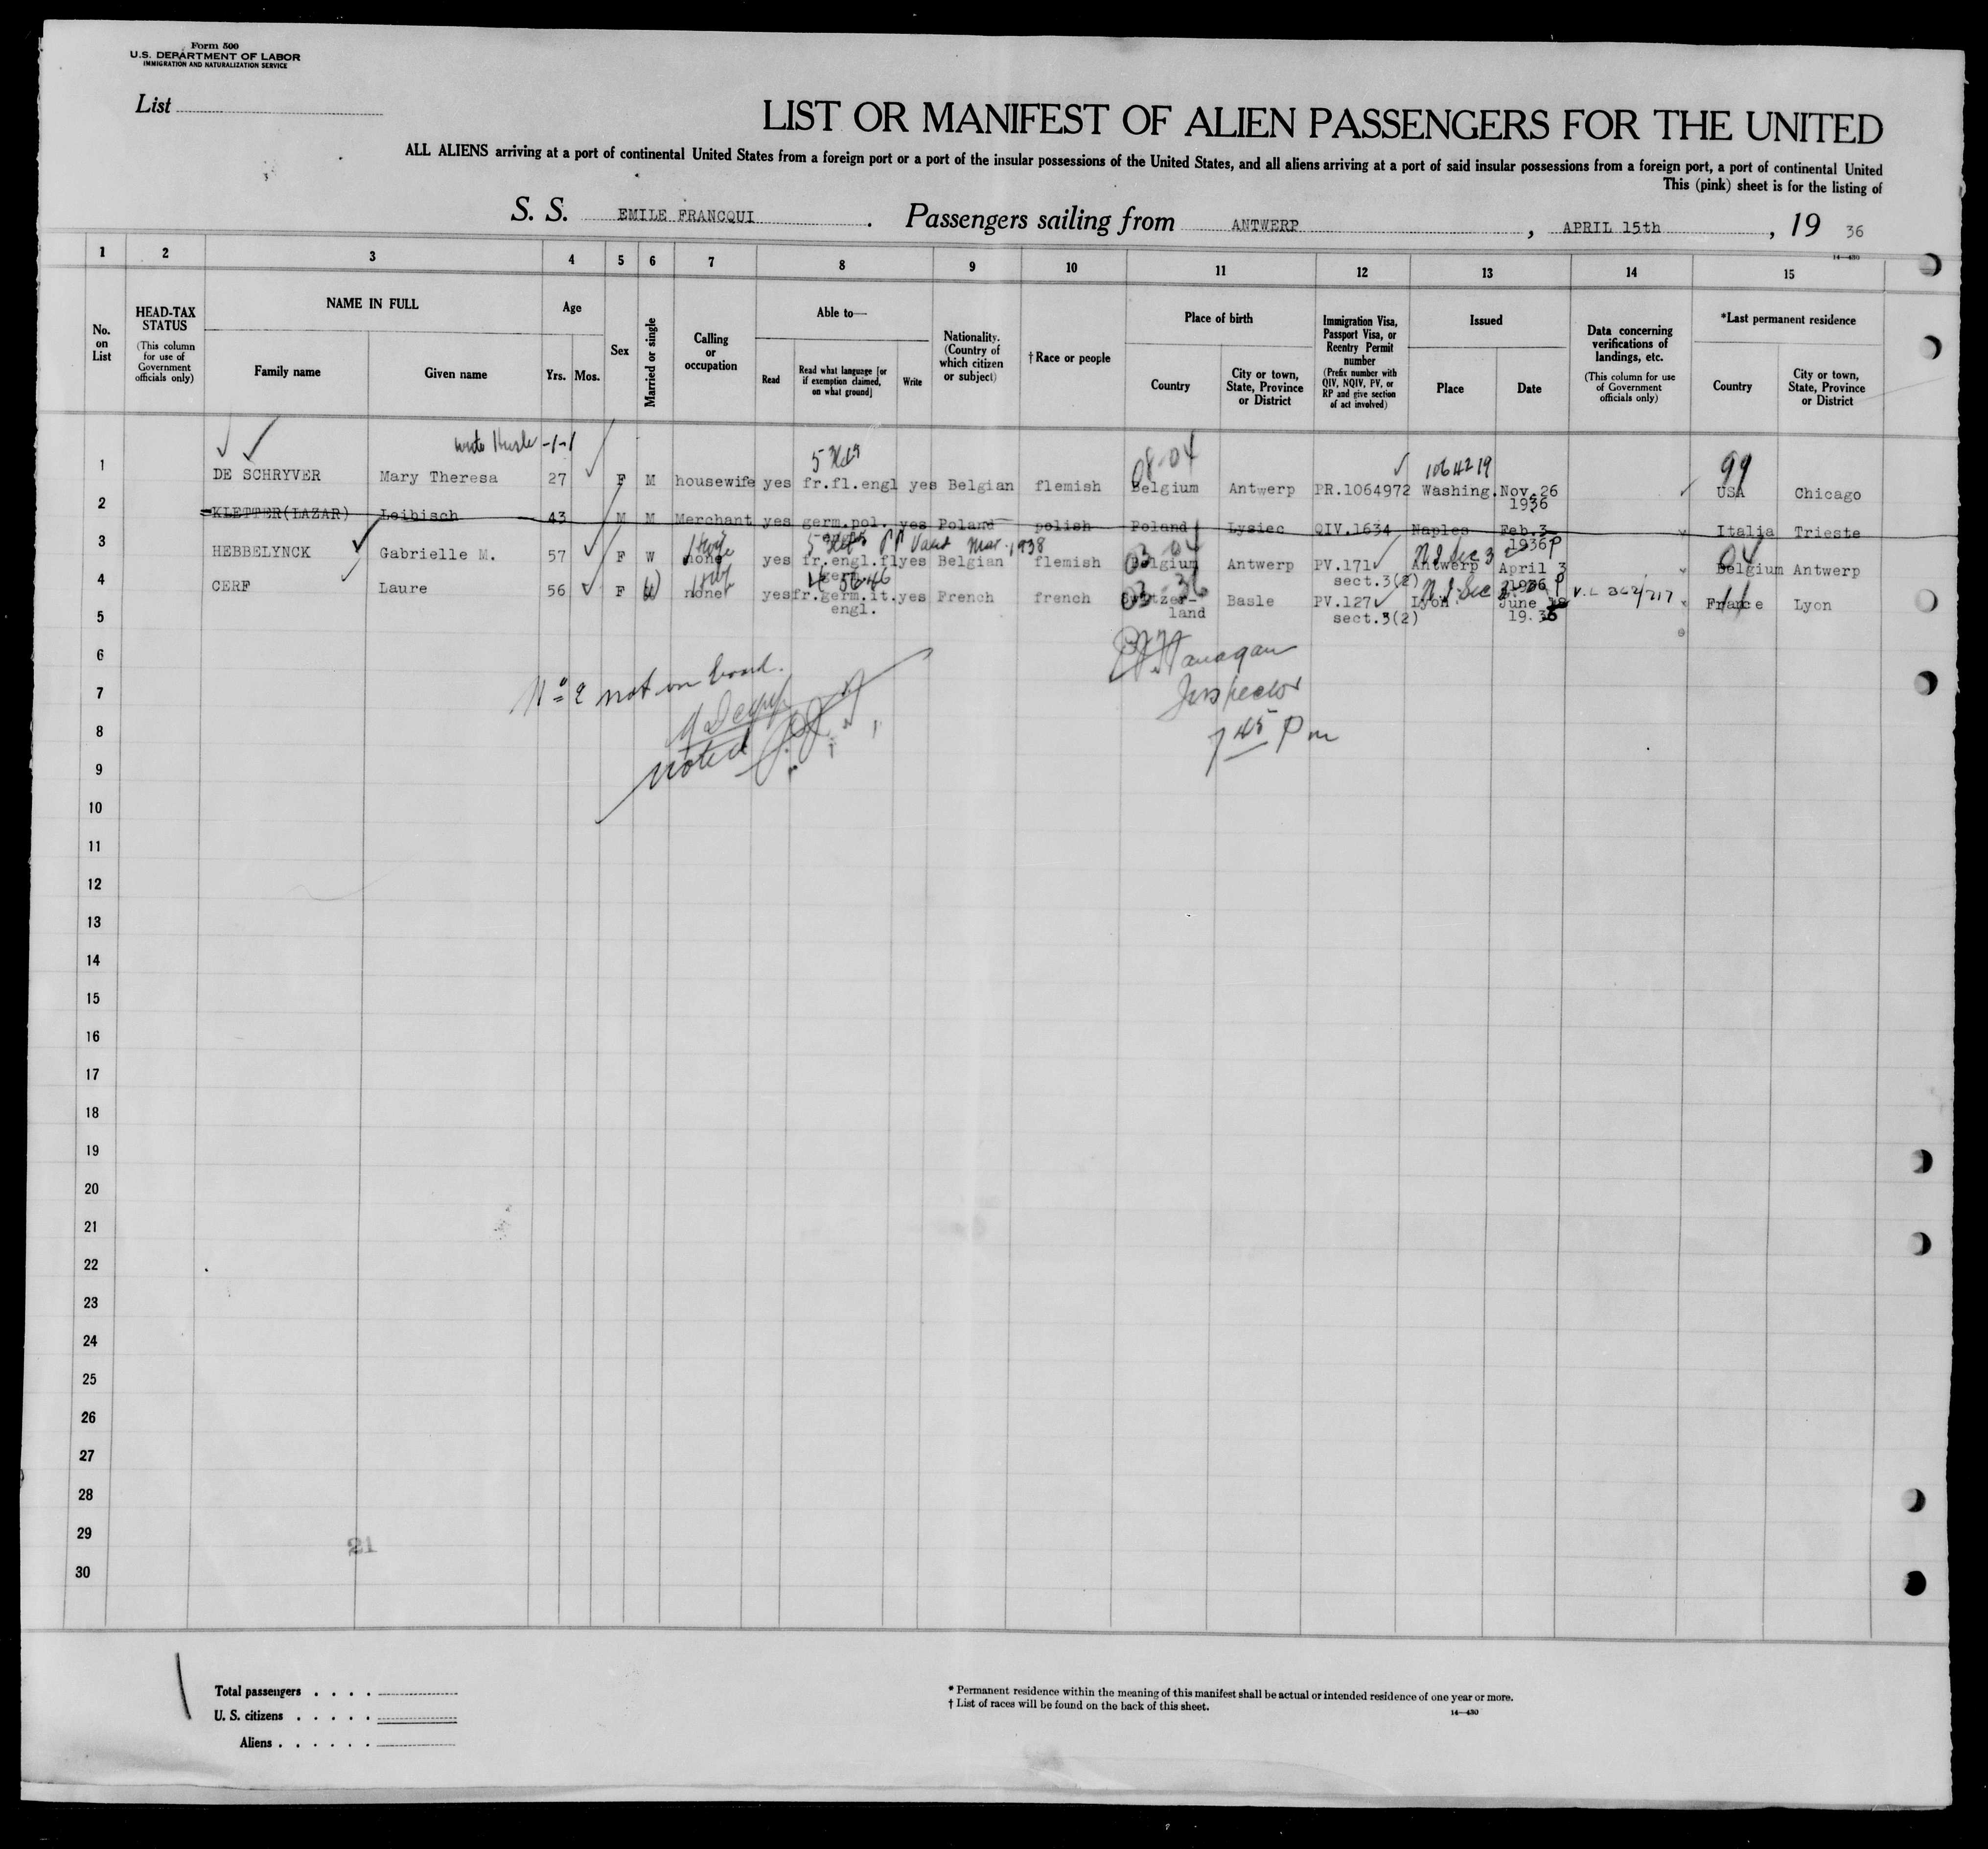 Form 500
U.S. DEPARTMENT OF LABOR
IMMIGRATION AND NATURALIZATION SERVICE
List
LIST OR MANIFEST OF ALIEN PASSENGERS FOR THE UNITED
ALL ALIENS arriving at a port of continental United States from a foreign port or a port of the insular possessions of the United States, and all aliens arriving at a port of said insular possessions from a foreign port, a port of continental United
This (pink) sheet is for the listing of
S. S. EMILE FRANCQUI . Passengers sailing from ANTWERP , APRIL 15th , 19 36
14—430
1 2 3 4 5 6 7 8 9 10 11 12 13 14 15
No. on List
HEAD-TAX STATUS
(This column for use of Government officials only)
NAME IN FULL
Family name Given name
Age
Yrs. Mos.
Sex
Married or single
Calling or occupation
Able to—
Read Read what language [or if exemption claimed, on what ground] Write
Nationality. (Country of which citizen or subject)
†Race or people
Place of birth
Country City or town, State, Province or District
Immigration Visa, Passport Visa, or Reentry Permit number
(Prefix number with QIV, NQIV, PV, or RP and give section of act involved)
Issued
Place Date
Data concerning verifications of landings, etc.
(This column for use of Government officials only)
*Last permanent residence
Country City or town, State, Province or District
08-04 1064219 99
1 DE SCHRYVER Mary Theresa 27 F M housewife yes fr.fl.engl yes Belgian flemish Belgium Antwerp PR.1064972 Washing. Nov.26 USA Chicago
1936
2 KLETTER(LAZAR) Leibisch 43 M M Merchant yes germ.pol. yes Poland polish Poland Lysiec QIV.1634 Naples Feb.3 Italia Trieste
1936
PP Valid Mar. 1938
03-04 04
3 HEBBELYNCK Gabrielle M. 57 F W none yes fr.engl.fl yes Belgian flemish Belgium Antwerp PV.171 Antwerp April 3 Belgium Antwerp
germ. sect.3(2) 1936
4 CERF Laure 56 F W none yes fr.germ.it. yes French french Switzer- Basle PV.127 Lyon June V.L 362/217 France Lyon
engl. land sect.3(2) 19.36
5
6
No 2 not on board.
Flanagan
7
Inspector
8
noted
7 45 Pm
9
10
11
12
13
14
15
16
17
18
19
20
21
22
23
24
25
26
27
28
29
21
30
Total passengers . . . .
U. S. citizens . . . . .
Aliens . . . . . .
* Permanent residence within the meaning of this manifest shall be actual or intended residence of one year or more.
† List of races will be found on the back of this sheet.
14—430